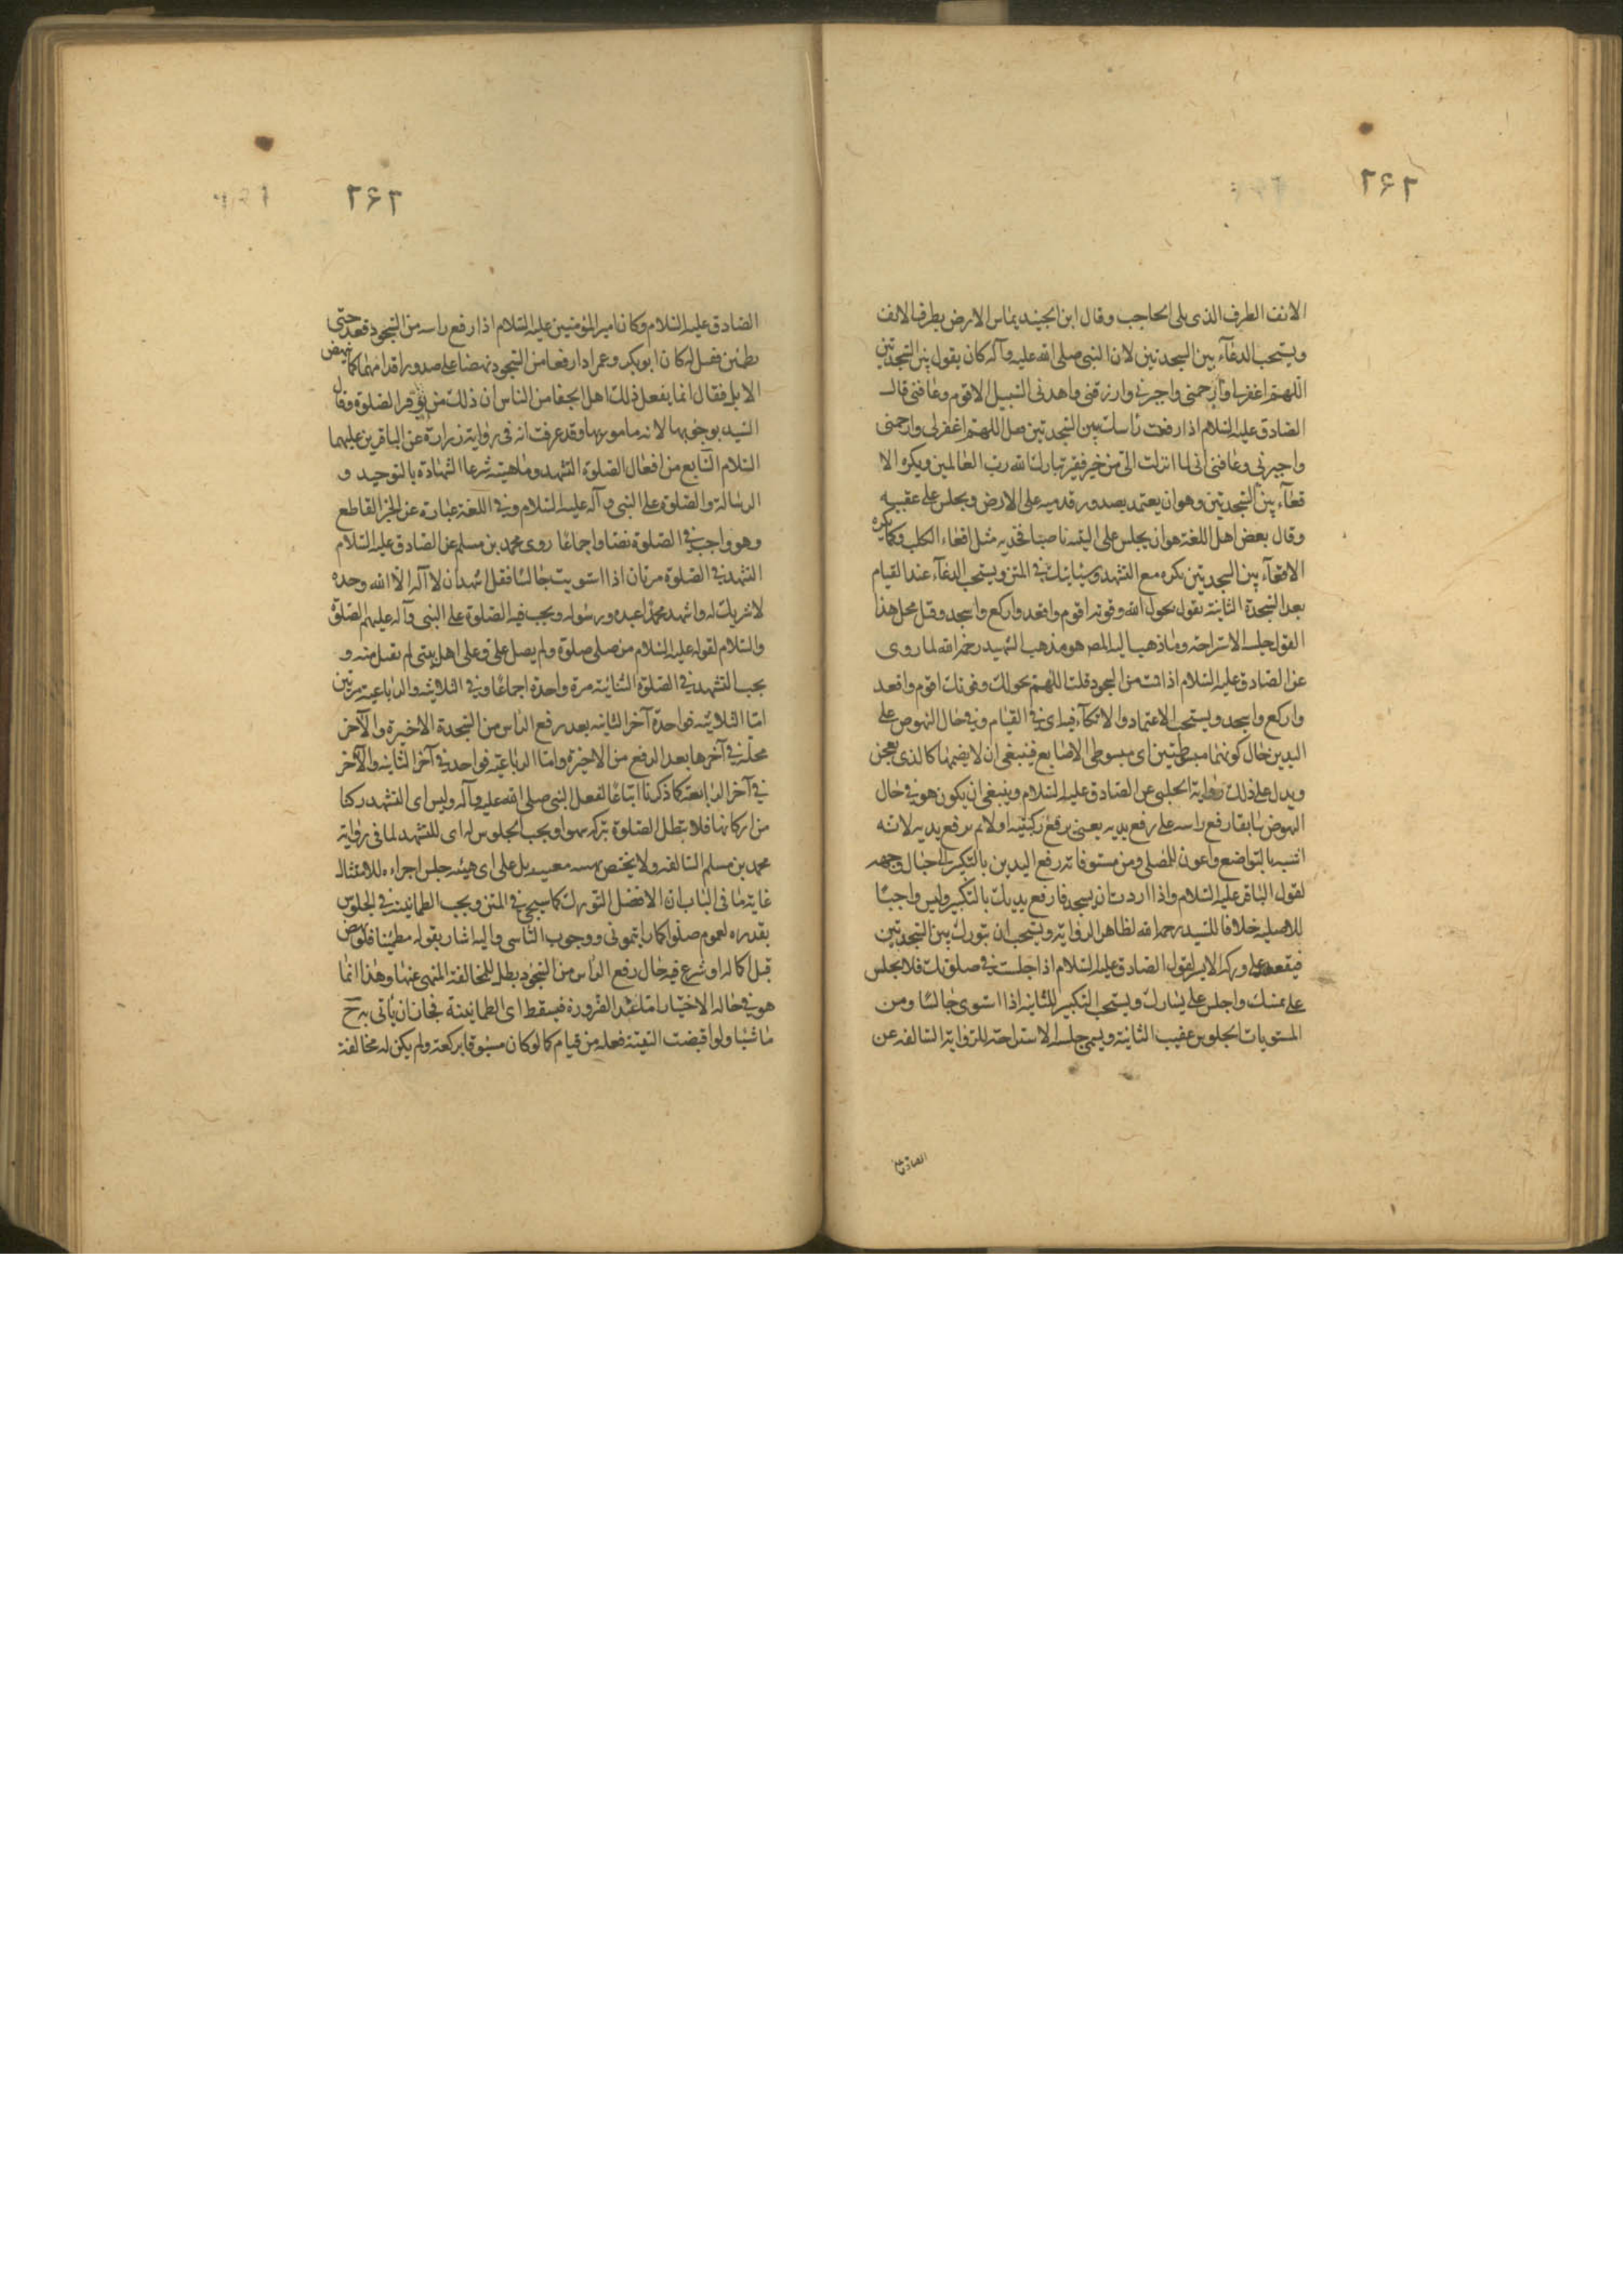 ۲۶۲
الانف الطرف الذى يلى الحاجب وقال ابن الجنيد يماس الارض بطرف الانف
ويستحب الدعآء بين السجدتين لان النبى صلى الله عليه وآله كان يقول بين السجدتين
اللهم اغفرلى وارحمنى واجرنى وارزقنى واهدنى السبيل الاقوم وعافنى قال
الصادق عليه السلام اذا رفعت راسك بين السجدتين فقل اللهم اغفر لى وارحمنى
واجبرنى وعافنى انى لما انزلت الى من خير فقير تبارك الله رب العالمين ويكره الا
قعآء بين السجدتين وهو ان يعتمد بصدور قدميه على الارض ويجلس على عقبيه
وقال بعض اهل اللغة هو ان يجلس على اليتيه ناصبا فخذيه مثل اقعاء الكلب وكما يكره
الاقعآء بين السجدتين يكره مع التشهد وسياتيك فى المتن ويستحب الدعآء عند القيام
بعد السجدة الثانية بقول بحول الله وقوته اقوم واقعد واركع واسجد وقيل محل هذا
القول جلسه الاستراحة وما ذهب اليه المصـ هو مذهب الشهيد رحمه الله لما روى
عن الصادق عليه السلام اذا قمت من السجود قلت اللهم بحولك وقوتك اقوم واقعد
واركع واسجد ويستحب الاعتماد والاتكآء فيه اى فى القيام وفى حال النهوض على
اليدين حال كونهما مبسوطتين اى مبسوطى الاصابع فينبغى ان لا يضمها كالذى يعجن
ويدل على ذلك رواية الحلبى عن الصادق عليه السلام وينبغى ان يكون هو فى حال
النهوض سابقا رفع راسه على رفع يديه يعنى يرفع ركبتيه اولا ثم يرفع يديه لانه
انسب بالتواضع واعون للمصلى ومن مستوفاته رفع اليدين بالتكبير الى حيال وجهه
لقول الباقر عليه السلام واذا اردت ان تسجد فارفع يديك بالتكبير وليس واجبا
للاصل خلافا للسيد رحمه الله لظاهر الرواية ويستحب ان يتورك بين السجدتين
فيقعد على وركه الايسر لقول الصادق عليه السلام اذا جلست فى صلوتك فلا تجلس
على يمينك واجلس على يسارك ويستحب التكبير للثانية اذا استوى جالسا ومن
المستويات الجلوس عقيب الثانية ويسمى جلسه الاستراحة للرواية السالفه عن
الصادق ع
۲۶۳
الصادق عليه السلام وكان امير المؤمنين عليه السلام اذا رفع راسه من السجود قعد حتى
يطمئن فقيل له كان ابو بكر وعمر اذا رفعا من السجود نهضا على صدور اقدامهما كما ينهض
الابل فقال انما يفعل ذلك اهل الجفا من الناس ان ذلك من توقير الصلوة وقال
السيد بوجوبها لانه مامور بها وقد عرفت انه فى رواية زرارة عن الباقرين عليهما
السلام السابع من افعال الصلوة التشهد وماهيته شرعا الشهادة بالتوحيد و
الرسالة والصلوة على النبى وآله عليه السلام وفى اللغة عبارة عن الخبر القاطع
وهو واجب فى الصلوة نصا واجماعا روى محمد بن مسلم عن الصادق عليه السلام
التشهد فى الصلوة مرتان اذا استويت جالسا فقل اشهد ان لا آله الا الله وحده
لا شريك له واشهد محمدا عبده ورسوله ويجب فيه الصلوة على النبى وآله عليهم الصلوة
والسلام لقوله عليه السلام من صلى صلوة ولم يصل على وعلى اهل بيتى لم تقبل منه و
يجب التشهد فى الصلوة الثنائية مرة واحدة اجماعا وفى الثلاثية والرباعية مرتين
امّا الثلاثية فواحدة آخر الثانيه بعد رفع الراس من السجدة الاخيرة والآخر
محله فى آخرها بعد الرفع من الاخيرة واما الرباعية فواحد فى آخر الثانيه والآخر
فى آخر الرابعة كما ذكرنا اتباعا لفعل النبى صلى الله عليه وآله وليس اى التشهد ركنا
من اركانها فلا تبطل الصلوة بتركه سهوا ويجب الجلوس له اى للتشهد لما فى رواية
محمد بن مسلم السالفه ولا يختص بهيئه معينه بل على اى هيئه جلس اجزاءه للامتثال
غاية ما فى الباب ان الافضل التورك كما سيجئ فى المتن ويجب الطمانينة فى الجلوس
بقدره لعموم صلوا كما رايتمونى ووجوب التاسى واليه اشار بقوله مطمئنا فلو نهض
قبل اكماله او شرع فيه حال رفع الراس من السجود بطل للمخالفة المنهى عنها وهذا انما
هو فى حالة الاختيار اما عند الضرورة فيسقط اى الطمانينة فجاز ان ياتى به حـ
ماشيا ولو اقتضت التقية فعله من قيام كما لو كان مسبوقا بركعة ولم يكن له مخالفة